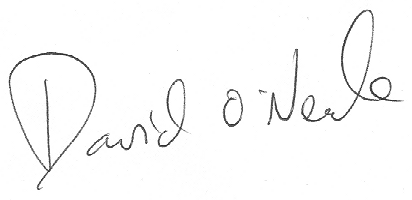 David O'Neale